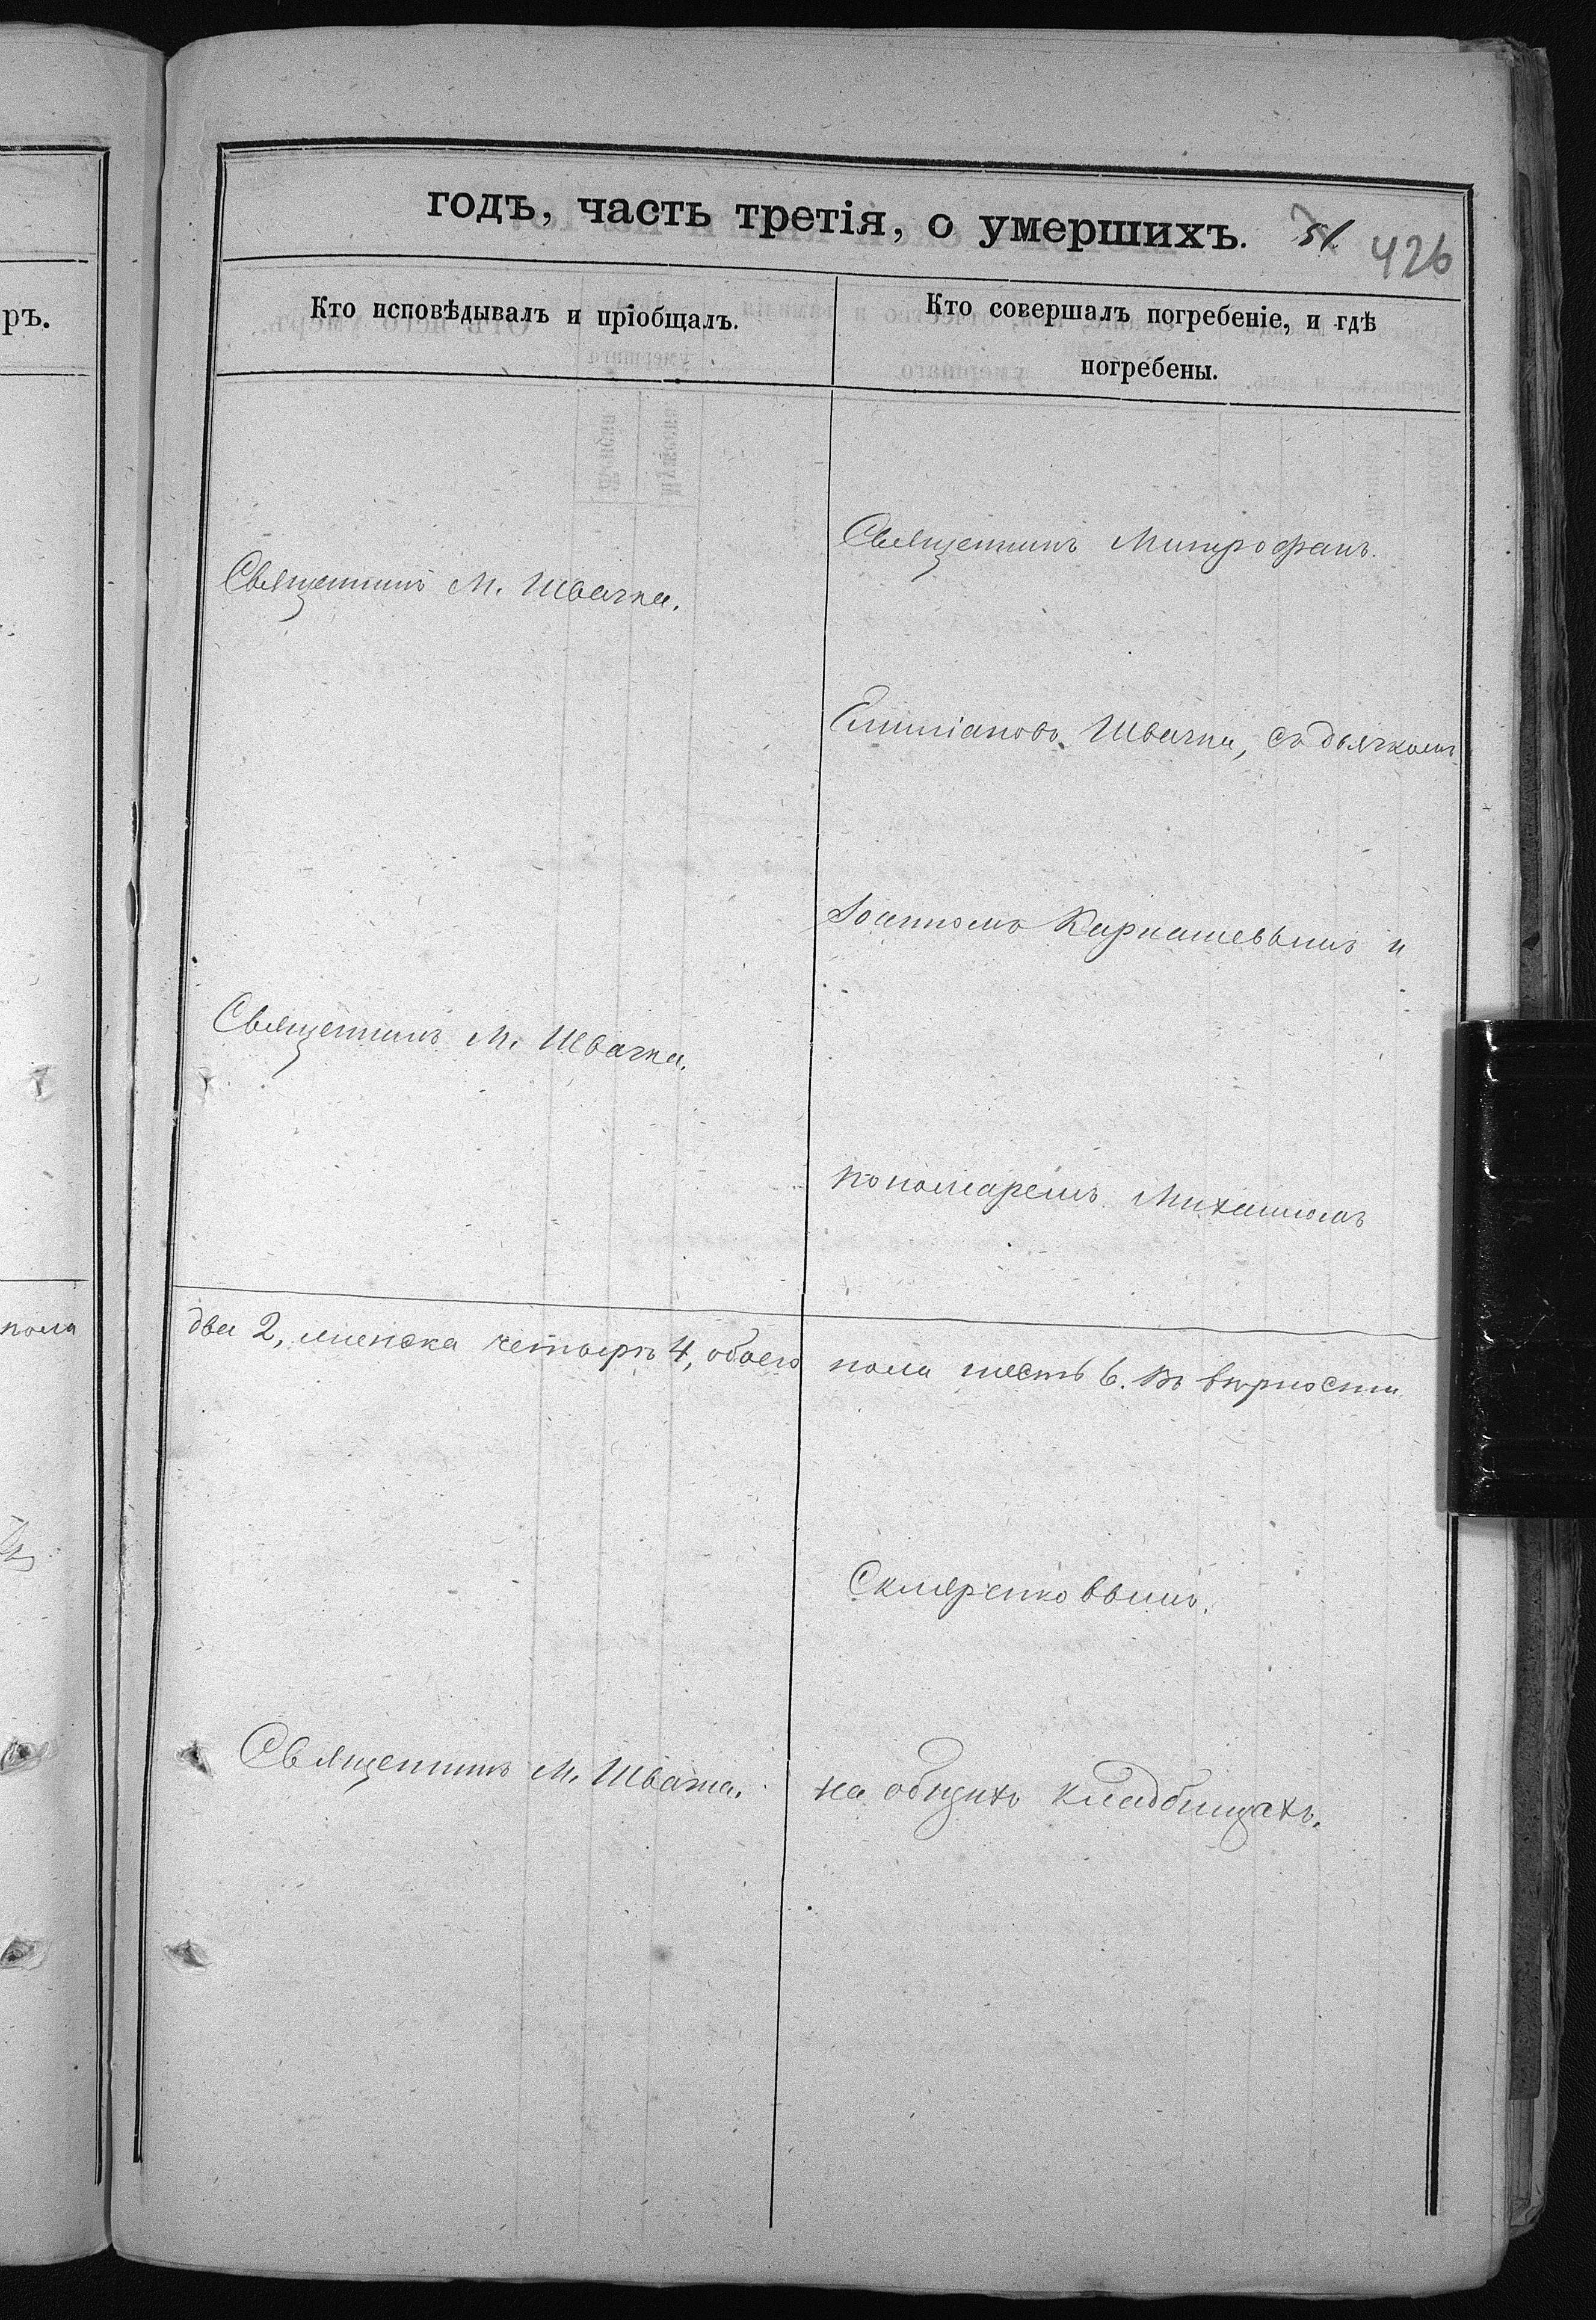 ръ.
пола
годъ, часть третія, о умершихъ.
51
426
Кто исповѣдывалъ и пріобщалъ.
Кто совершалъ погребеніе, и гдѣ
погребены.
Священникъ Митрофанъ
Священникъ М. Швачка.
Емиліановъ Швачка, съ дьячкомъ
Іоанномъ Карпашевымъ и
Священникъ М. Швачка.
пономаремъ Михаиломъ
два 2, женска четыре 4, обоего пола шесть 6. Въ вѣрности
Скляренковымъ.
Священникъ М. Швачка.
на общихъ кладбищахъ.